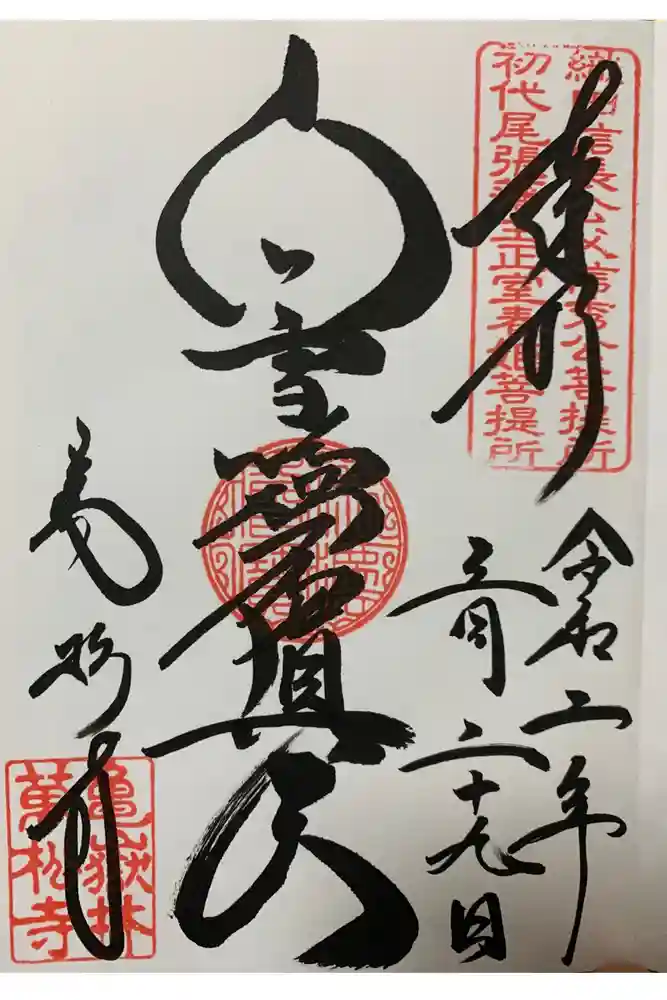 奉拝
織田信長公父信秀公菩提所
初代尾張藩主正室春姫菩提所
令和二年
三月二十九日
白雪
眞天
萬松寺
亀嶽林
萬松寺